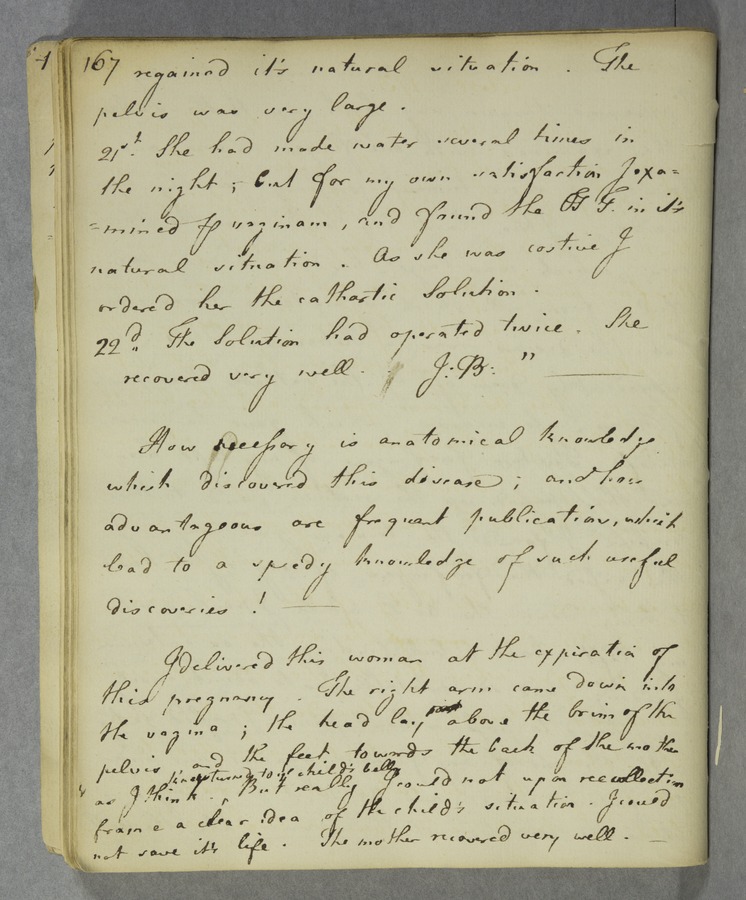 167 regained it's natural situation. The
pelvis was very large.
21st. She had made water several times in
the night; but for my own satisfaction I exa=
=mined p vaginam, and found the in it's
natural situation. As she was costive I
ordered her the cathartic Solution.
22d The Solution had operated twice. She
recovered very well. J:B: "
How necessary is anatomical knowledge
which discovered this disease; and how
advantageous are frequent publications, which
lead to a speedy knowledge of such useful
discoveries!
I delivered this woman at the expiration of
this pregnancy. The right arm came down into
the vagina; the head lay above the brim of the
pelvis, and the feet towards the back of the mother
turned to child's belly
as I think. But really I could not upon recollection
frame a clear idea of the child's situation. I could
not save it's life. The mother recovered very well.